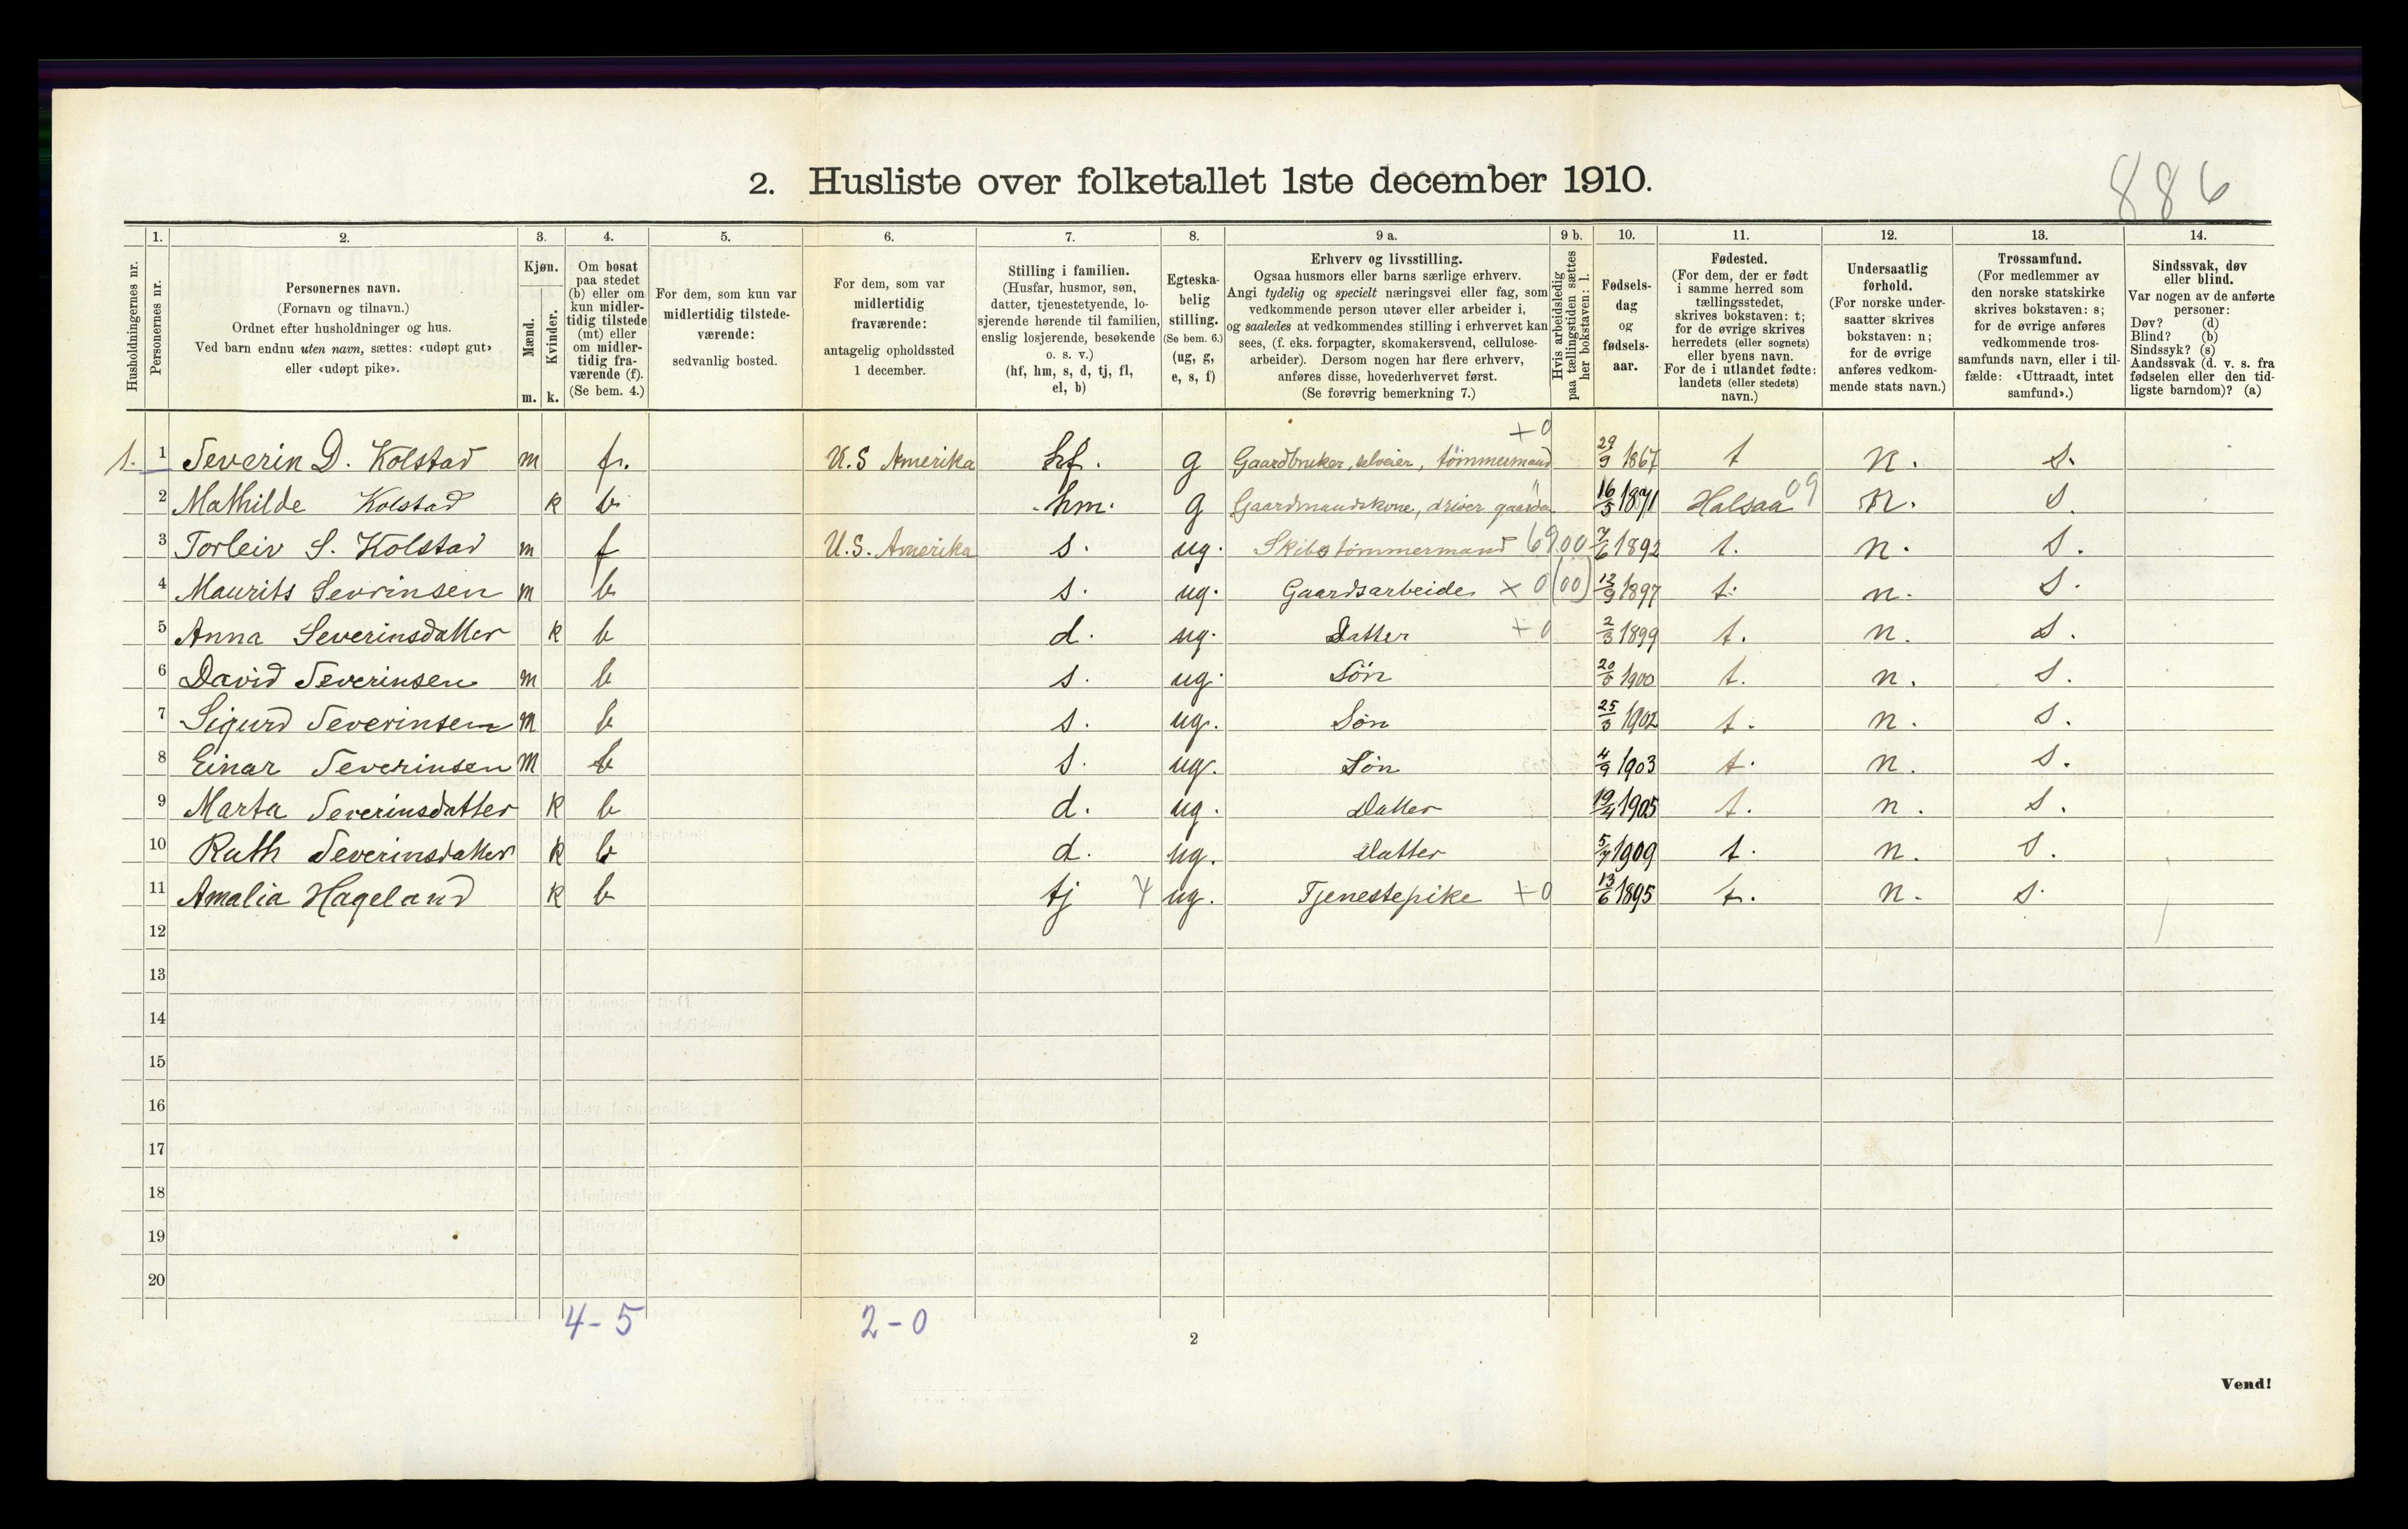 886
2. Husliste over folketallet 1ste december 1910.
Husholdningernes nr.
1. Personernes nr.
2. Personernes navn. (Fornavn og tilnavn.) Ordnet efter husholdninger og hus. Ved barn endnu uten navn, sættes: «udøpt gut» eller «udøpt pike».
3. Kjøn. Mænd. m. Kvinder. k.
4. Om bosat paa stedet (b) eller om kun midlertidig tilstede (mt) eller om midlertidig fraværende (f). (Se bem. 4.)
5. For dem, som kun var midlertidig tilstedeværende: sedvanlig bosted.
6. For dem, som var midlertidig fraværende: antagelig opholdssted 1 december.
7. Stilling i familien. (Husfar, husmor, søn, datter, tjenestetyende, losjerende hørende til familien, enslig losjerende, besøkende o. s. v.) (hf, hm, s, d, tj, fl, el, b)
8. Egteskabelig stilling. (Se bem. 6.) (ug, g, e, s, f)
9 a. Erhverv og livsstilling. Ogsaa husmors eller barns særlige erhverv. Angi tydelig og specielt næringsvei eller fag, som vedkommende person utøver eller arbeider i, og saaledes at vedkommendes stilling i erhvervet kan sees, (f. eks. forpagter, skomakersvend, cellulosearbeider). Dersom nogen har flere erhverv, anføres disse, hovederhvervet først. (Se forøvrig bemerkning 7.)
9 b. Hvis arbeidsledig paa tællingstiden sættes her bokstaven: l.
10. Fødselsdag og fødselsaar.
11. Fødested. (For dem, der er født i samme herred som tællingsstedet, skrives bokstaven: t; for de øvrige skrives herredets (eller sognets) eller byens navn. For de i utlandet fødte: landets (eller stedets) navn.)
12. Undersaatlig forhold. (For norske undersaatter skrives bokstaven: n; for de øvrige anføres vedkommende stats navn.)
13. Trossamfund. (For medlemmer av den norske statskirke skrives bokstaven: s; for de øvrige anføres vedkommende trossamfunds navn, eller i tilfælde: «Uttraadt, intet samfund».)
14. Sindssvak, døv eller blind. Var nogen av de anførte personer: Døv? (d) Blind? (b) Sindssyk? (s) Aandssvak (d. v. s. fra fødselen eller den tidligste barndom)? (a)
1. 1 Severin D. Kolstad m f. U.S Amerika hf. g Gaardbruker, selveier, tömmermand +0 29/9 1867 t n. s.
2 Mathilde Kolstad k b hm. g Gaardmandskone, driver gaarden " 16/5 1871 Halsaa 09 n. s.
3 Torleiv S. Kolstad m f U.S. Amerika s. ug. Skibstömmermand 6900 7/6 1892 t. n. s.
4 Maurits Sevrinsen m b s. ug. Gaardsarbeide x 0 (00) 12/9 1897 t. n. s.
5 Anna Severinsdatter k b d. ug. Datter +0 2/3 1899 t. n. s.
6 David Severinsen m b s. ug. Sön 1900 t. n. s.
7 Sigurd Severinsen m b s. ug. Søn 25/3 1902 t. n. s.
8 Einar Severinsen m b s. ug. Søn 4/9 1903 t. n. s.
9 Marta Severinsdatter k b d. ug. Datter 19/4 1905 t. n. s.
10 Ruth Severinsdatter k b d. ug. Datter 5/7 1909 t. n. s.
11 Amalia Hageland k b tj 4 ug. Tjenestepike +0 13/6 1895 t. n. s.
12
13
14
15
16
17
18
19
20
4-5 2-0
2
Vend!